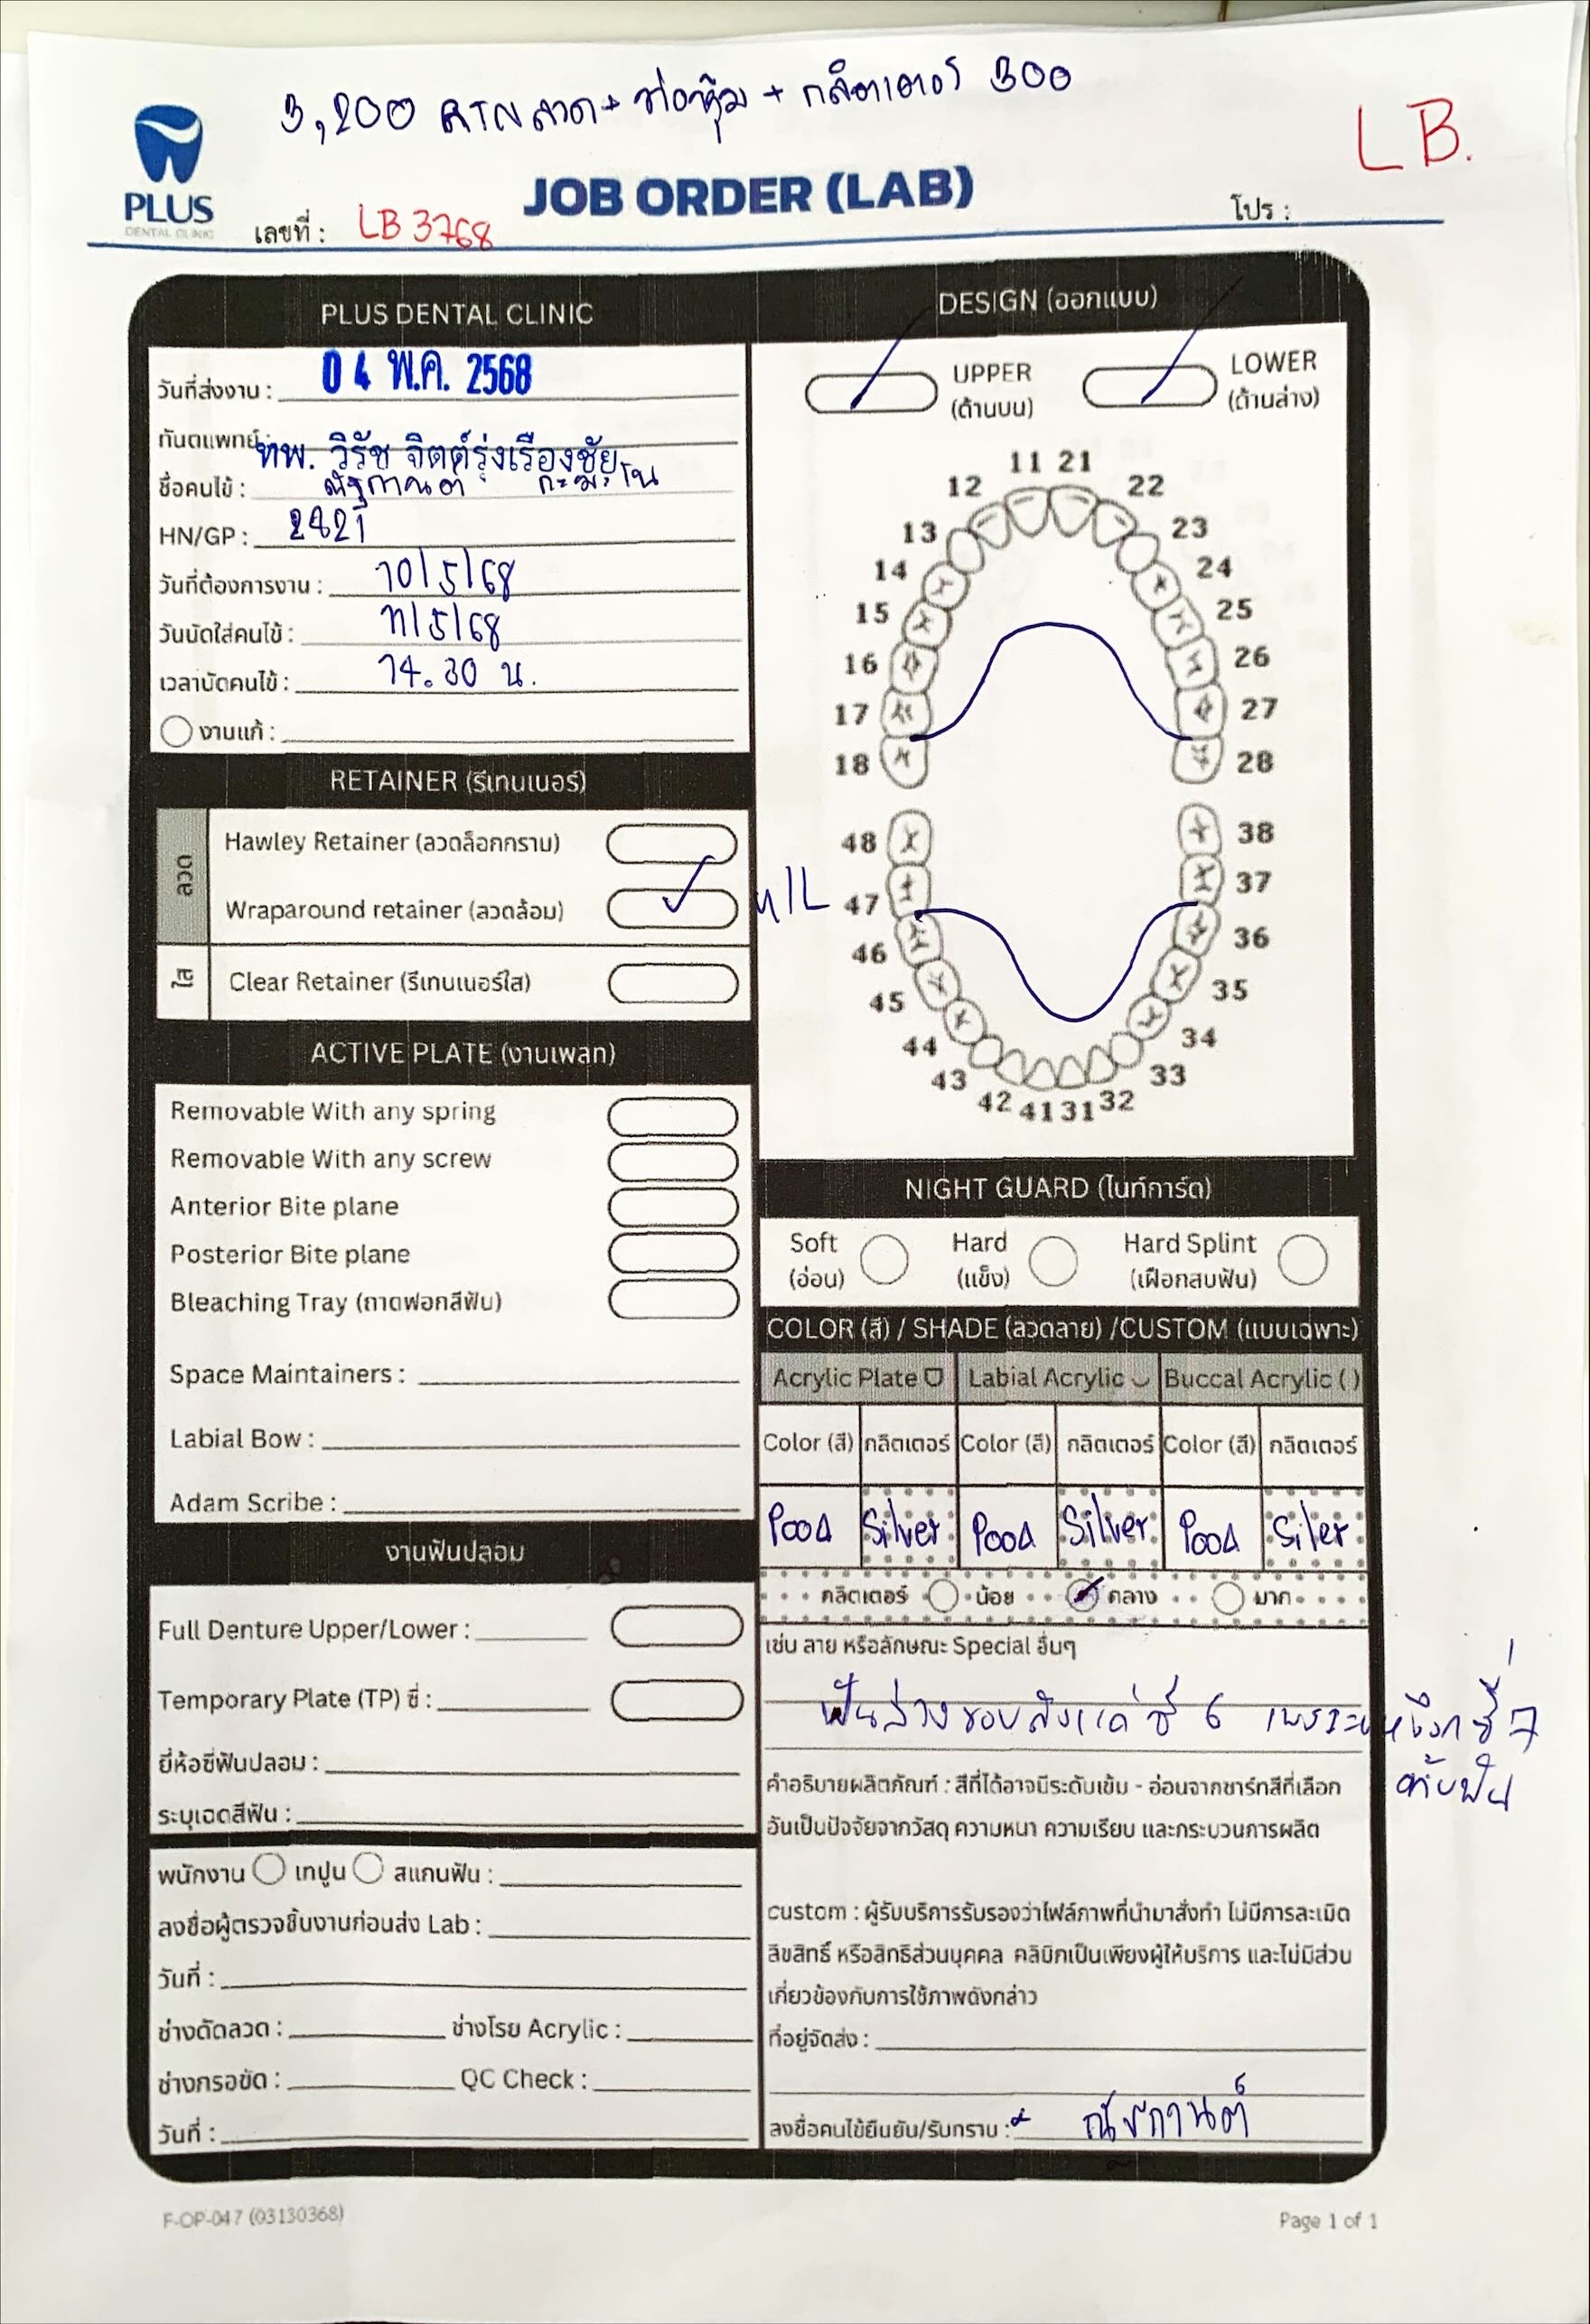 3,200 RTN ลวด + ท่อหุ้ม + กลิตเตอร์ 300
LB.
PLUS
DENTAL CLINIC
JOB ORDER (LAB)
เลขที่ : LB 3768
โปร :
PLUS DENTAL CLINIC
วันที่ส่งงาน : 04 พ.ค. 2568
ทันตแพทย์ : ทพ. วิรัช จิตต์รุ่งเรืองชัย
ชื่อคนไข้ : ณัฐกานต์
HN/GP : 2821
วันที่ต้องการงาน : 10/5/68
วันนัดใส่คนไข้ : 11/5/68
เวลานัดคนไข้ : 14.30 น.
งานแก้ :
RETAINER (รีเทนเนอร์)
ลวด
Hawley Retainer (ลวดล็อกกราม)
Wraparound retainer (ลวดล้อม) U/L
ใส
Clear Retainer (รีเทนเนอร์ใส)
ACTIVE PLATE (งานเพลท)
Removable With any spring
Removable With any screw
Anterior Bite plane
Posterior Bite plane
Bleaching Tray (ถาดฟอกสีฟัน)
Space Maintainers :
Labial Bow :
Adam Scribe :
งานฟันปลอม
Full Denture Upper/Lower :
Temporary Plate (TP) ซี่ :
ยี่ห้อซี่ฟันปลอม :
ระบุเฉดสีฟัน :
พนักงาน เทปูน สแกนฟัน :
ลงชื่อผู้ตรวจชิ้นงานก่อนส่ง Lab :
วันที่ :
ช่างดัดลวด : ช่างโรย Acrylic :
ช่างกรอขัด : QC Check :
วันที่ :
DESIGN (ออกแบบ)
UPPER
(ด้านบน)
LOWER
(ด้านล่าง)
11 21
12 22
13 23
14 24
15 25
16 26
17 27
18 28
48 38
47 37
46 36
45 35
44 34
43 33
42 41 31 32
NIGHT GUARD (ไนท์การ์ด)
Soft
(อ่อน)
Hard
(แข็ง)
Hard Splint
(เฝือกสบฟัน)
COLOR (สี) / SHADE (ลวดลาย) /CUSTOM (แบบเฉพาะ)
Acrylic Plate Labial Acrylic Buccal Acrylic ( )
Color (สี) กลิตเตอร์ Color (สี) กลิตเตอร์ Color (สี) กลิตเตอร์
P004 Silver P004 Silver P004 Siler
กลิตเตอร์ น้อย กลาง มาก
เช่น ลาย หรือลักษณะ Special อื่นๆ
ฟันล่างขอบสิ้นแค่ซี่ 6 เพราะเหงือกซี่ 7
ทับฟัน
คำอธิบายผลิตภัณฑ์ : สีที่ได้อาจมีระดับเข้ม - อ่อนจากชาร์ทสีที่เลือก
อันเป็นปัจจัยจากวัสดุ ความหนา ความเรียบ และกระบวนการผลิต
custom : ผู้รับบริการรับรองว่าไฟล์ภาพที่นำมาสั่งทำ ไม่มีการละเมิด
ลิขสิทธิ์ หรือสิทธิส่วนบุคคล คลินิกเป็นเพียงผู้ให้บริการ และไม่มีส่วน
เกี่ยวข้องกับการใช้ภาพดังกล่าว
ที่อยู่จัดส่ง :
ลงชื่อคนไข้ยืนยัน/รับทราบ : ณัฐกานต์
F-OP-047 (03130368)
Page 1 of 1